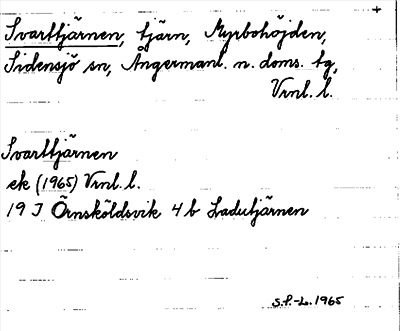 +
Svarttjärnen, tjärn, Myrbohöjden,
Sidensjö sn, Ångermanl. n. doms. tg,
Vrnl. l.
Svarttjärnen
ek (1965) Vrnl. l.
19 J Örnsköldsvik 4 b Ladutjärnen
S.f.-L. 1965